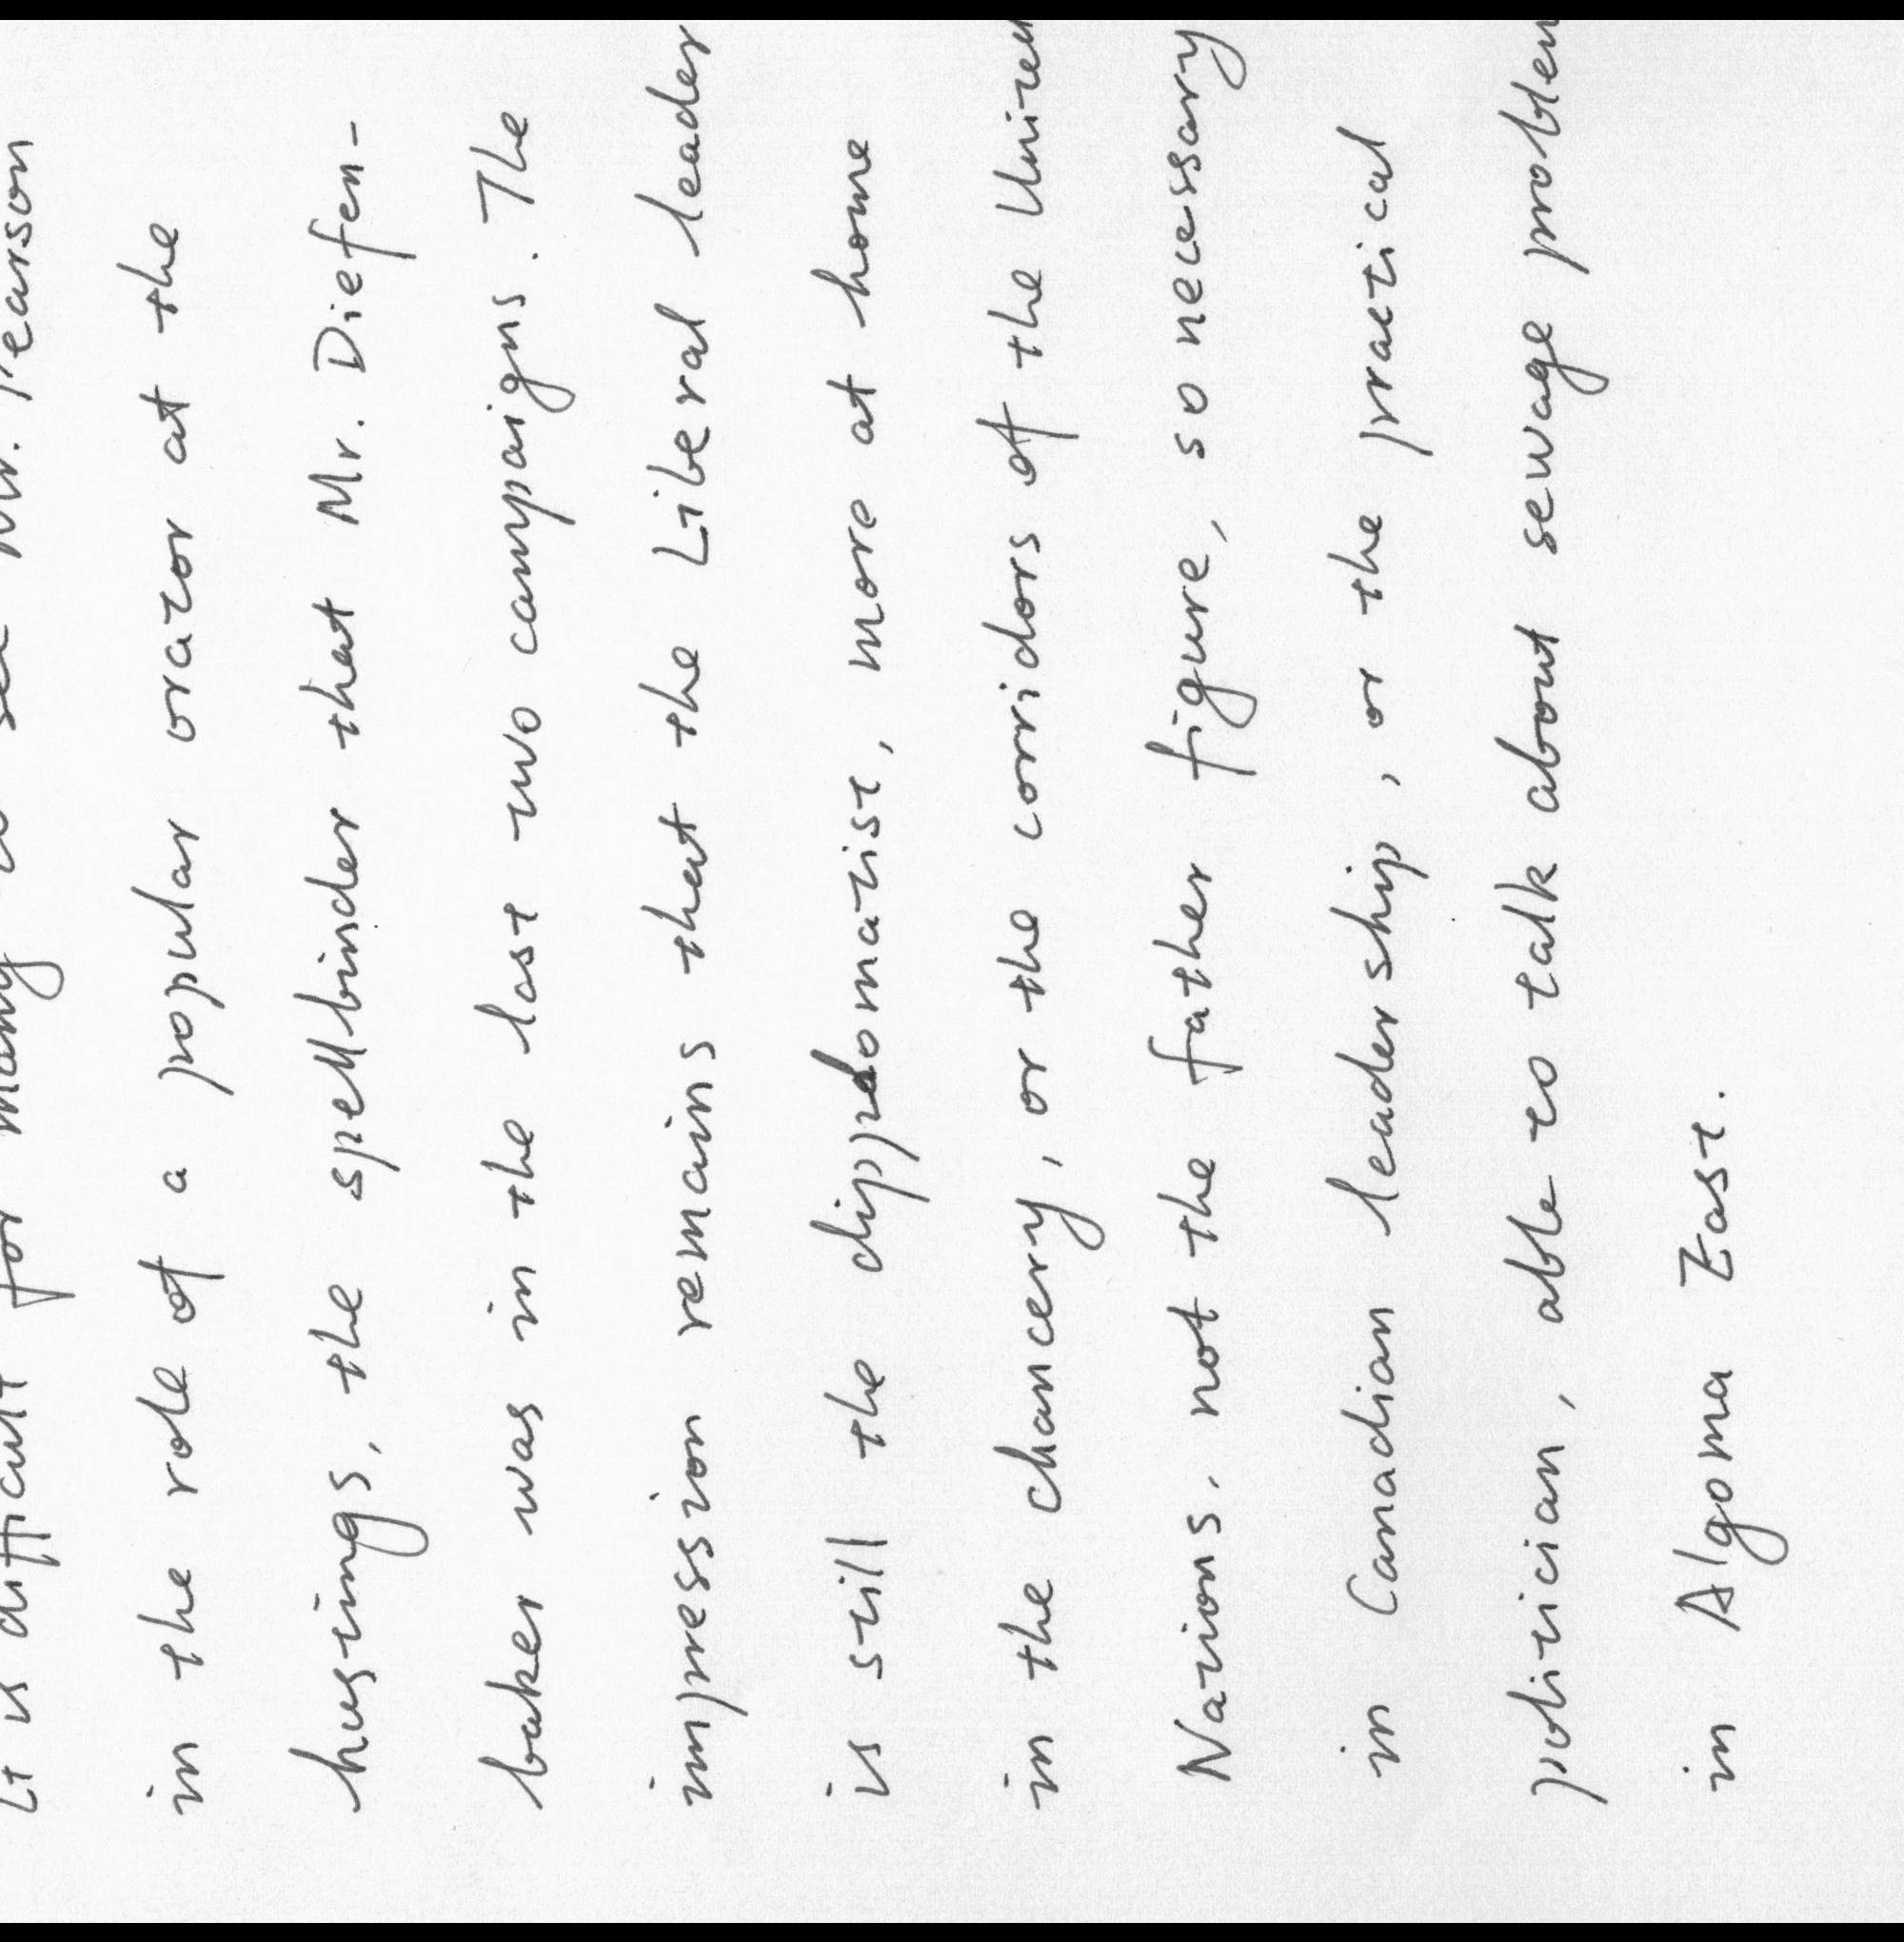 It is difficult for many to see Mr. Pearson
in the role of a popular orator at the
hustings, the spellbinder that Mr. Diefen-
baker was in the last two campaigns. The
impression remains that the Liberal leader
is still the dipplomatist, more at home
in the chancery, or the corridors of the United
Nations, not the father figure, so necessary
in Canadian leadership, or the practical
politician, able to talk about sewage problem
in Algoma East.